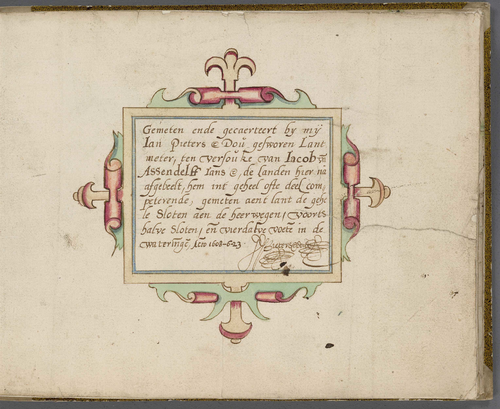 Gemeten ende gecaerteert by my
Ian Pieters Dou gesworen Lant
meter, ten versoucke van Iacob vā
Assendelff Ians, de landen hier nā
afgebeelt, hem int geheel ofte deel com,
peterende, gemeten aent lant de gehe
le Sloten aen de heerwegen, voorts
halve Sloten, en vierdalve voete in de
wateringē